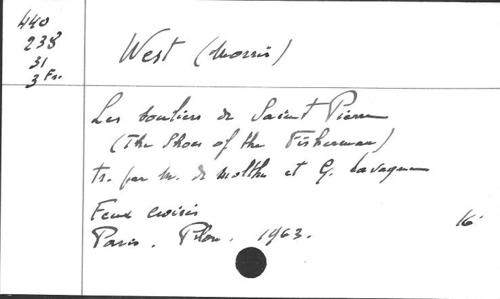 440
238
31
3 Fr.
West (Morris)
Les souliers de Saint Pierre
(The Shoes of the Fisherman)
tr. par M. de Molthe et G. Lavagne
Feux croisés
Paris. Plon. 1963. 16